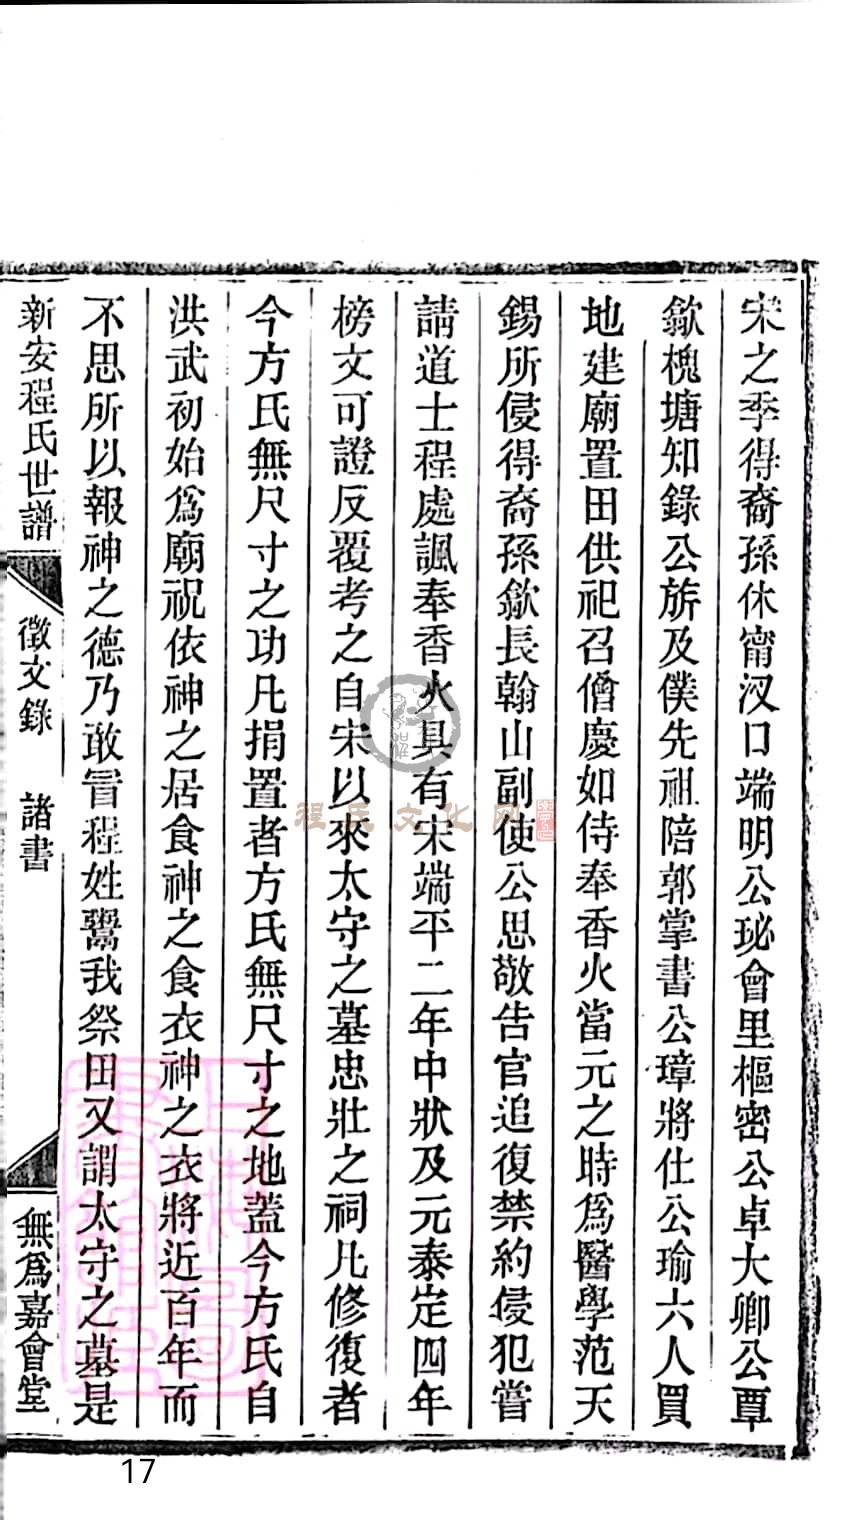 宋之季得裔孫休甯汊口端明公珌會里樞密公卓大卿公覃
歙槐塘知錄公旂及僕先祖陪郭掌書公璋將仕公瑜六人買
地建廟置田供祀召僧慶如侍奉香火當元之時爲醫學范天
錫所侵得裔孫歙長翰山副使公思敬告官追復禁約侵犯嘗
請道士程處諷奉香火具有宋端平二年中狀及元泰定四年
榜文可證反覆考之自宋以來太守之墓忠壯之祠凡修復者
今方氏無尺寸之功凡捐置者方氏無尺寸之地蓋今方氏自
洪武初始爲廟祝依神之居食神之食衣神之衣將近百年而
不思所以報神之德乃敢冒程姓鬻我祭田又謂太守之墓是
新安程氏世譜 徵文錄 諸書 無爲嘉會堂
程氏文化网
17